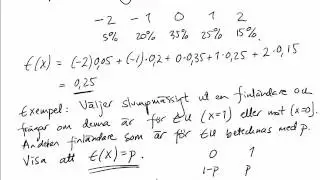 -2 -1 0 1 2
5% 20% 35% 25% 15%
E(X) = (-2)·0,05 + (-1)·0,2 + 0·0,35 + 1·0,25 + 2·0,15
= 0,25
Exempel: Väljer slumpmässigt ut en finländare och
frågar om denna är för EU (X=1) eller mot (X=0).
Andelen finländare som är för EU betecknas med p.
Visa att E(X)=p.
0 1
1-p p